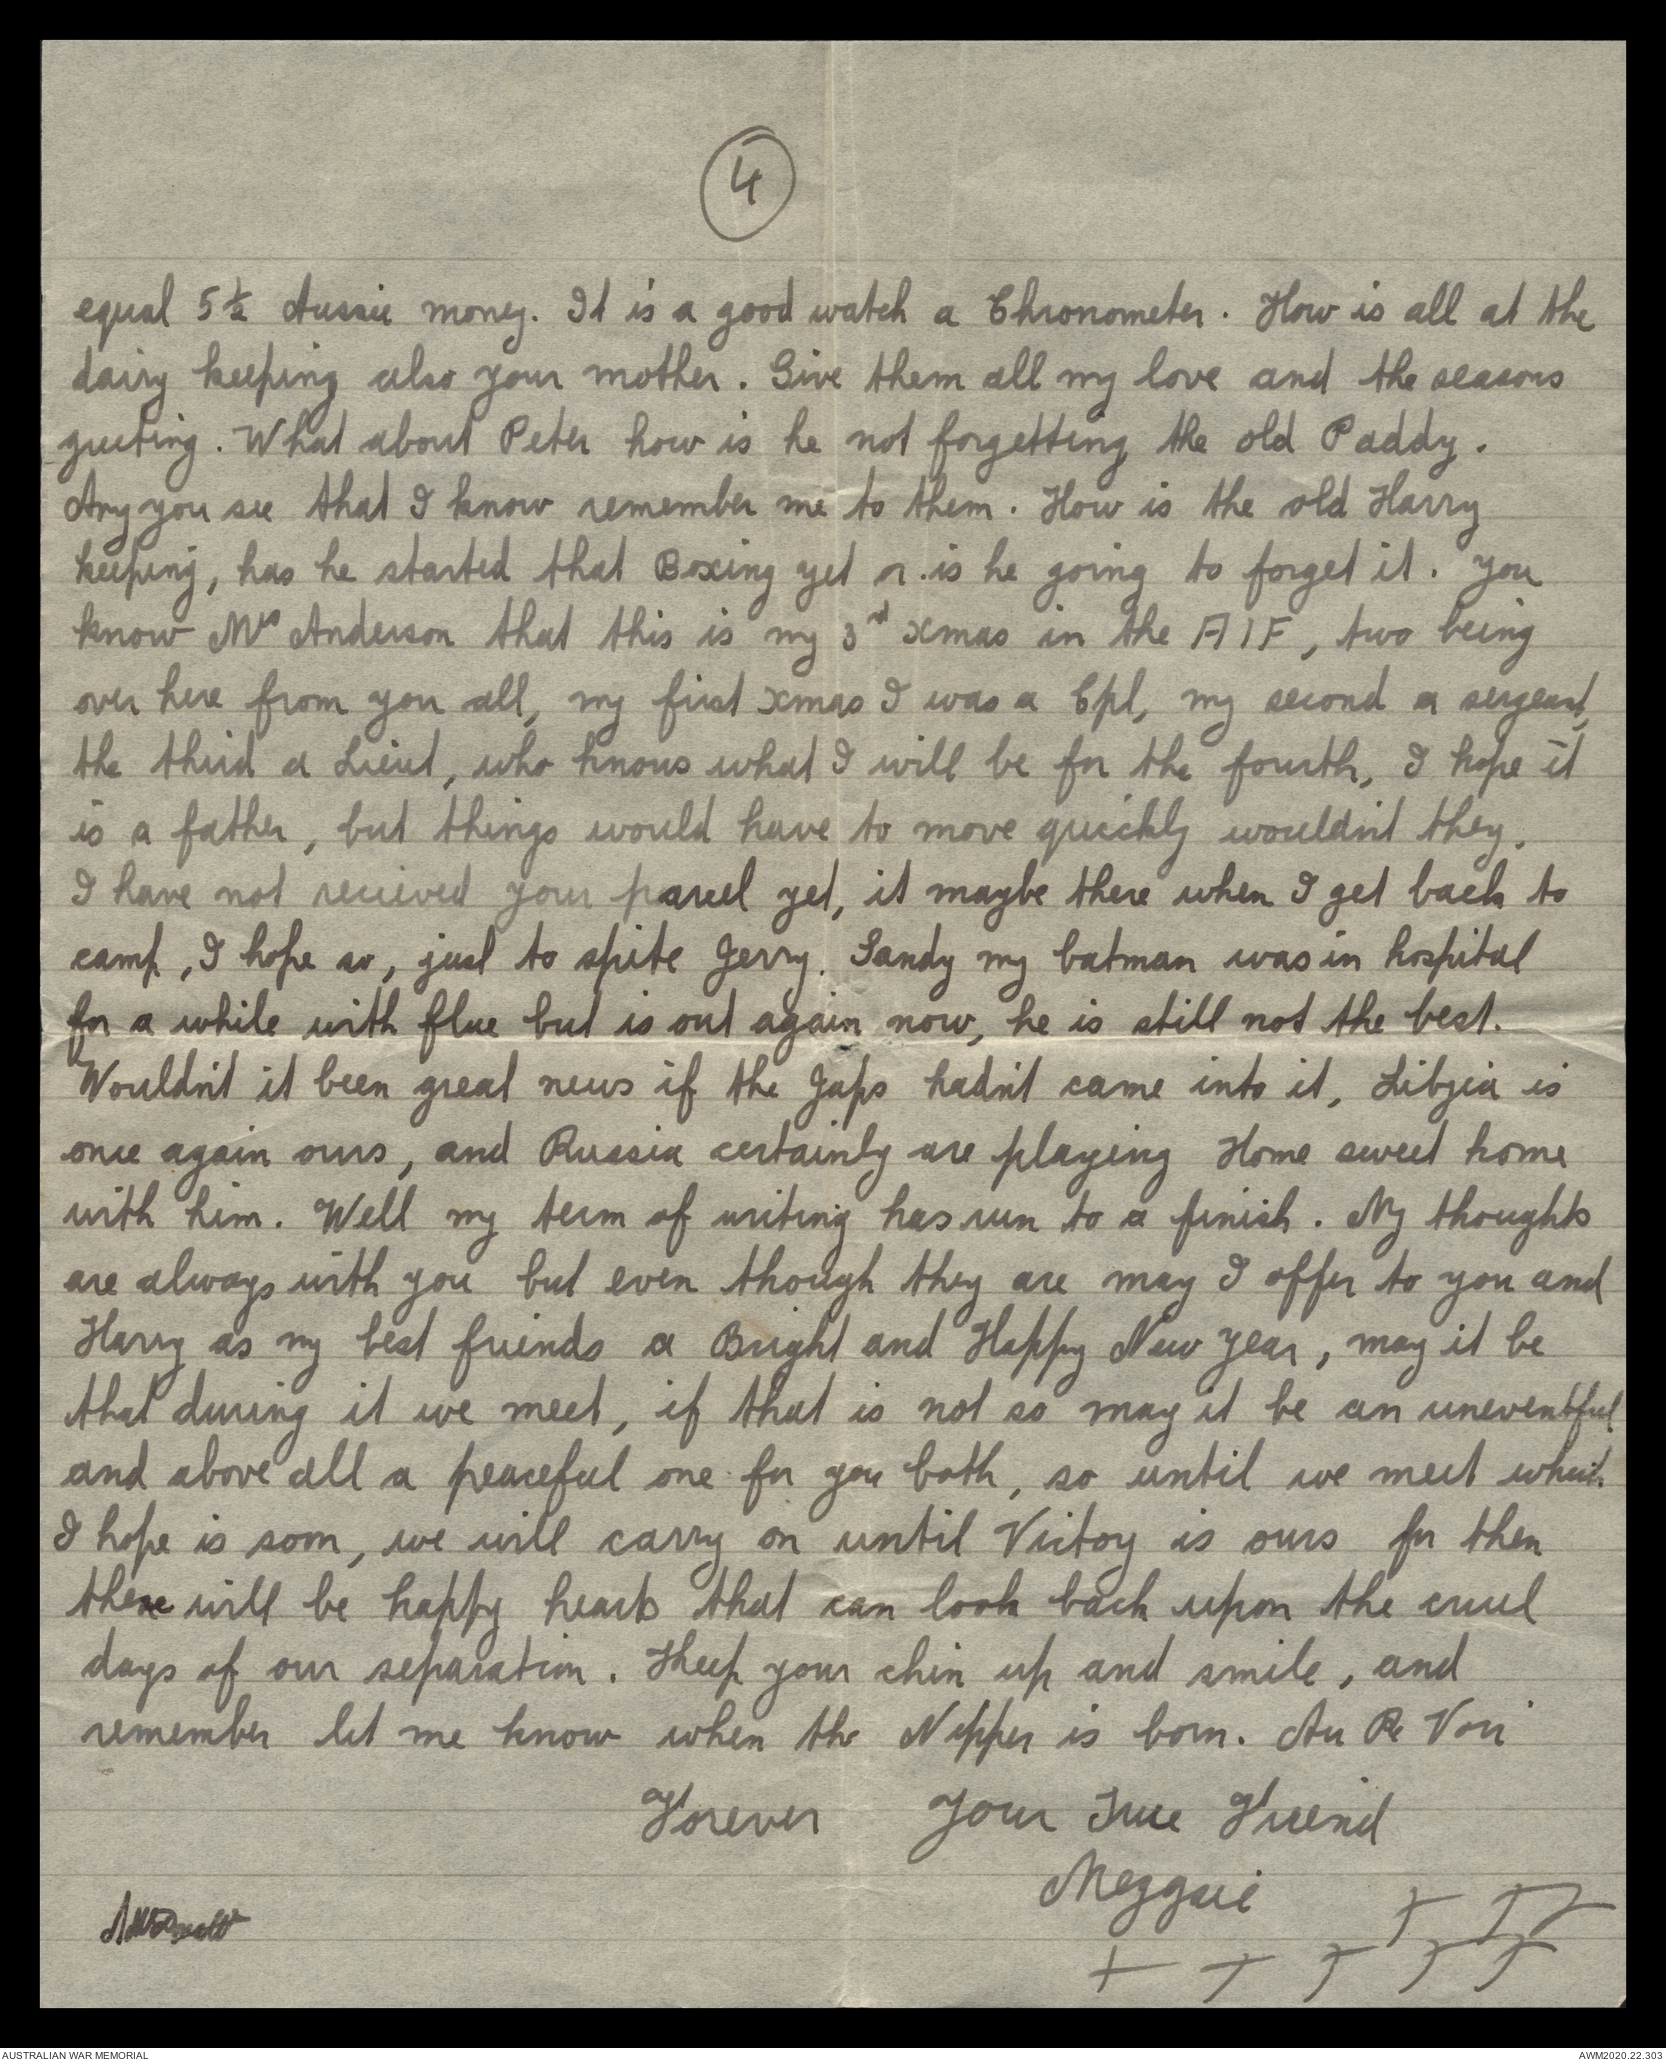 4
equal 5½ Aussie money. It is a good watch a Chronometer. How is all at the
dairy keeping also your mother. Give them all my love and the seasons
greeting. What about Peter how is he not forgetting the old Paddy.
Any you see that I know remember me to them. How is the old Harry
keeping, has he started that Boxing yet or is he going to forget it. You
know Mrs Anderson that this is my 3rd Xmas in the AIF, two being
over here from you all, my first Xmas I was a Cpl, my second a sergeant,
the third a Lieut, who knows what I will be for the fourth, I hope it
is a father, but things would have to move quickly wouldn't they.
I have not recieved your parcel yet, it maybe there when I get back to
camp, I hope so, just to spite Jerry. Sandy my batman was in hospital
for a while with flue but is out again now, he is still not the best.
Wouldn't it been great news if the Japs hadn't came into it, Libyia is
once again ours, and Russia certainly are playing Home sweet home
with him. Well my term of writing has run to a finish. My thoughts
are always with you but even though they are may I offer to you and
Harry as my best friends a Bright and Happy New Year, may it be
that during it we meet, if that is not so may it be an uneventful
and above all a peaceful one for you both, so until we meet which
I hope is soon, we will carry on until Victoy is ours for then
there will be happy hearts that can look back upon the cruel
days of our separation. Keep your chin up and smile, and
remember let me know when the Nipper is born. Au Re Voir
Forever Your True Friend
Meggsie
AUSTRALIAN WAR MEMORIAL
AWM2020.22.303